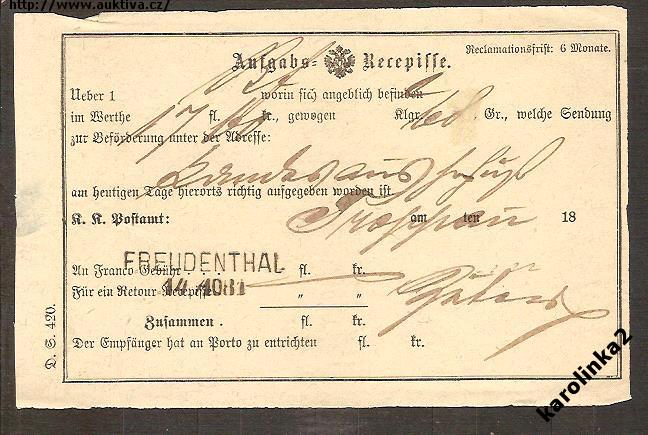 http://www.auktiva.cz/
Aufgabs= Recepisse.
Reclamationsfrist: 6 Monate.
Ueber 1 worin sich angeblich befinden
im Werthe fl. kr., gewogen Klgr. Gr., welche Sendung
zur Beförderung unter der Adresse:
Landesausschuß
am heutigen Tage hierorts richtig aufgegeben worden ist
Troppau
K. K. Postamt: am ten 18
FREUDENTHAL
An Franco-Gebühr . . fl. kr.
Für ein Retour-Recepisse „ „
Zusammen . fl. kr.
Der Empfänger hat an Porto zu entrichten fl. kr.
D. S. 420.
karolinka2